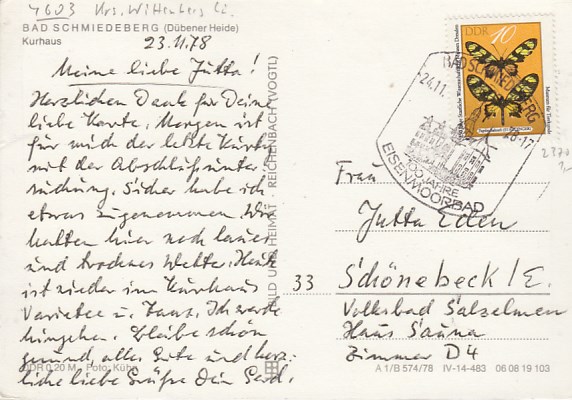 4603 Krs. Wittenberg
BAD SCHMIEDEBERG (Dübener Heide)
Kurhaus
23.11.78
Meine liebe Jutta!
Herzlichen Dank für Deine
liebe Karte. Morgen ist
für mich der letzte Kurtag
mit der Abschlußunter-
suchung. Sicher habe ich
etwas zugenommen. Wir
hatten hier noch lauer
und trockenes Wetter. Heute
ist wieder im Kurhaus
Varietee u. Tanz. Ich werde
hingehen. Bleibe schön
gesund, alles Gute und herz-
liche liebe Grüße Dein Gerd.
DDR 0,20 M Foto: Kühn
BILD UND HEIMAT · REICHENBACH (VOGTL)
DDR 10
BAD SCHMIEDEBERG
24.11.
-17
100 JAHRE
EISENMOORBAD
2370
Frau
Jutta Eden
33 Schönebeck/E.
Volksbad Salzelmen
Haus Sauna
Zimmer D4
A 1/B 574/78 IV-14-483 06 08 19 103